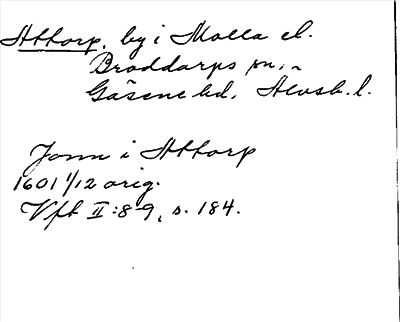 Attorp, by i Molla el.
Broddarps sn.,
Gäsene hd, Älvsb. l.
Jonn i Attorp
1601 1/12 orig.
Vft II:8-9, s. 184.